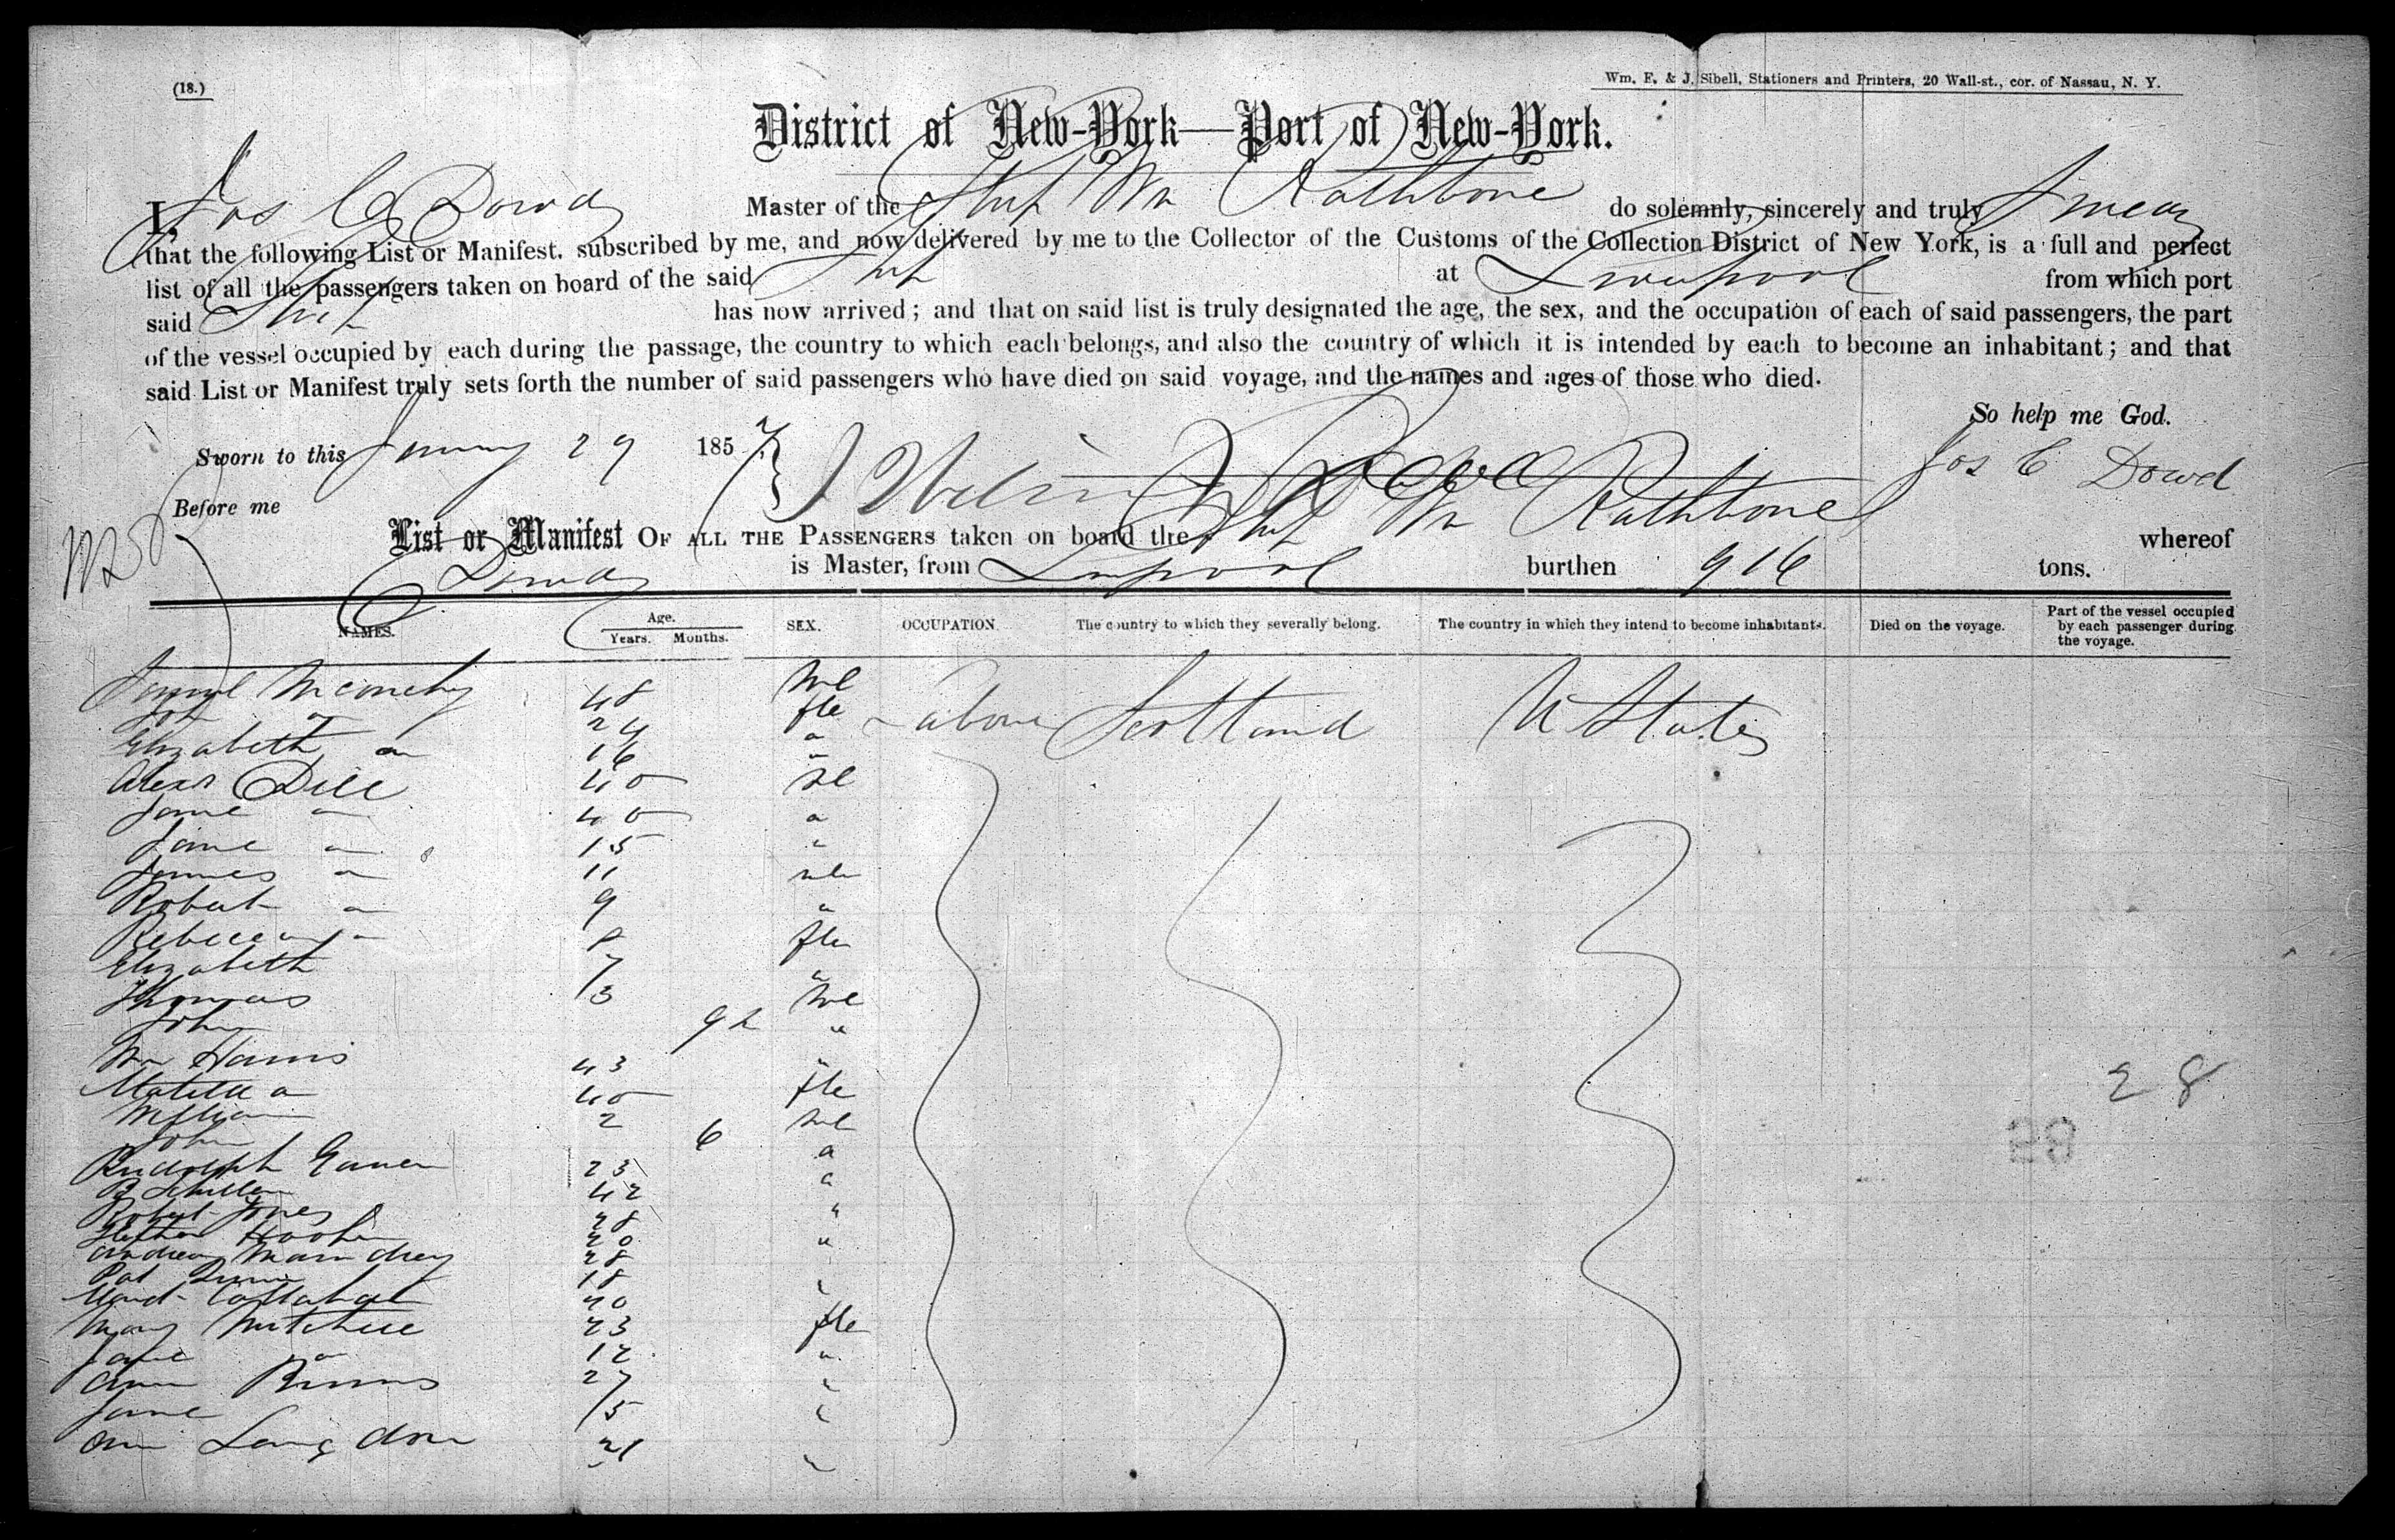 (18.)
Wm. E. & J. Sibell, Stationers and Printers, 20 Wall-st., cor. of Nassau, N. Y.
District of New-York—Port of New-York.
I, Jos C Dowd Master of the Ship Wm Rathbone do solemnly, sincerely and truly Swear
that the following List or Manifest. subscribed by me, and now delivered by me to the Collector of the Customs of the Collection District of New York, is a full and perfect
list of all the passengers taken on board of the said Ship at Liverpool from which port
said Ship has now arrived; and that on said list is truly designated the age, the sex, and the occupation of each of said passengers, the part
of the vessel occupied by each during the passage, the country to which each belongs, and also the country of which it is intended by each to become an inhabitant; and that
said List or Manifest truly sets forth the number of said passengers who have died on said voyage, and the names and ages of those who died.
So help me God.
Sworn to this January 29 1857
Jos C Dowd
Before me
List or Manifest OF ALL THE PASSENGERS taken on board the Ship Wm Rathbone whereof
Dowd is Master, from Liverpool burthen 916 tons.
NAMES. Age. Years. Months. SEX. OCCUPATION. The country to which they severally belong. The country in which they intend to become inhabitants. Died on the voyage. Part of the vessel occupied by each passenger during the voyage.
48 Ml
24 fle above Scotland U States
Elizabeth " 16 "
Alexr Dill 40 Ml
Jane " 40 "
Jane " 15 "
James " 11 Ml
Robert " 9 "
Rebecca " 8 fle
Elizabeth 7 "
Thomas 3 Ml
John 9 "
Wm Harris 43 "
Matilda " 40 fle
William 2 Ml
John 6 "
Rudolph 23 "
42 "
Robert Jones 28 "
20 "
Andrew 28
Pat 18
40
Mary Mitchell 23 fle
Jane " 12 "
Ann Burns 27 "
Jane 15 "
Ann Langdon 21 "
28